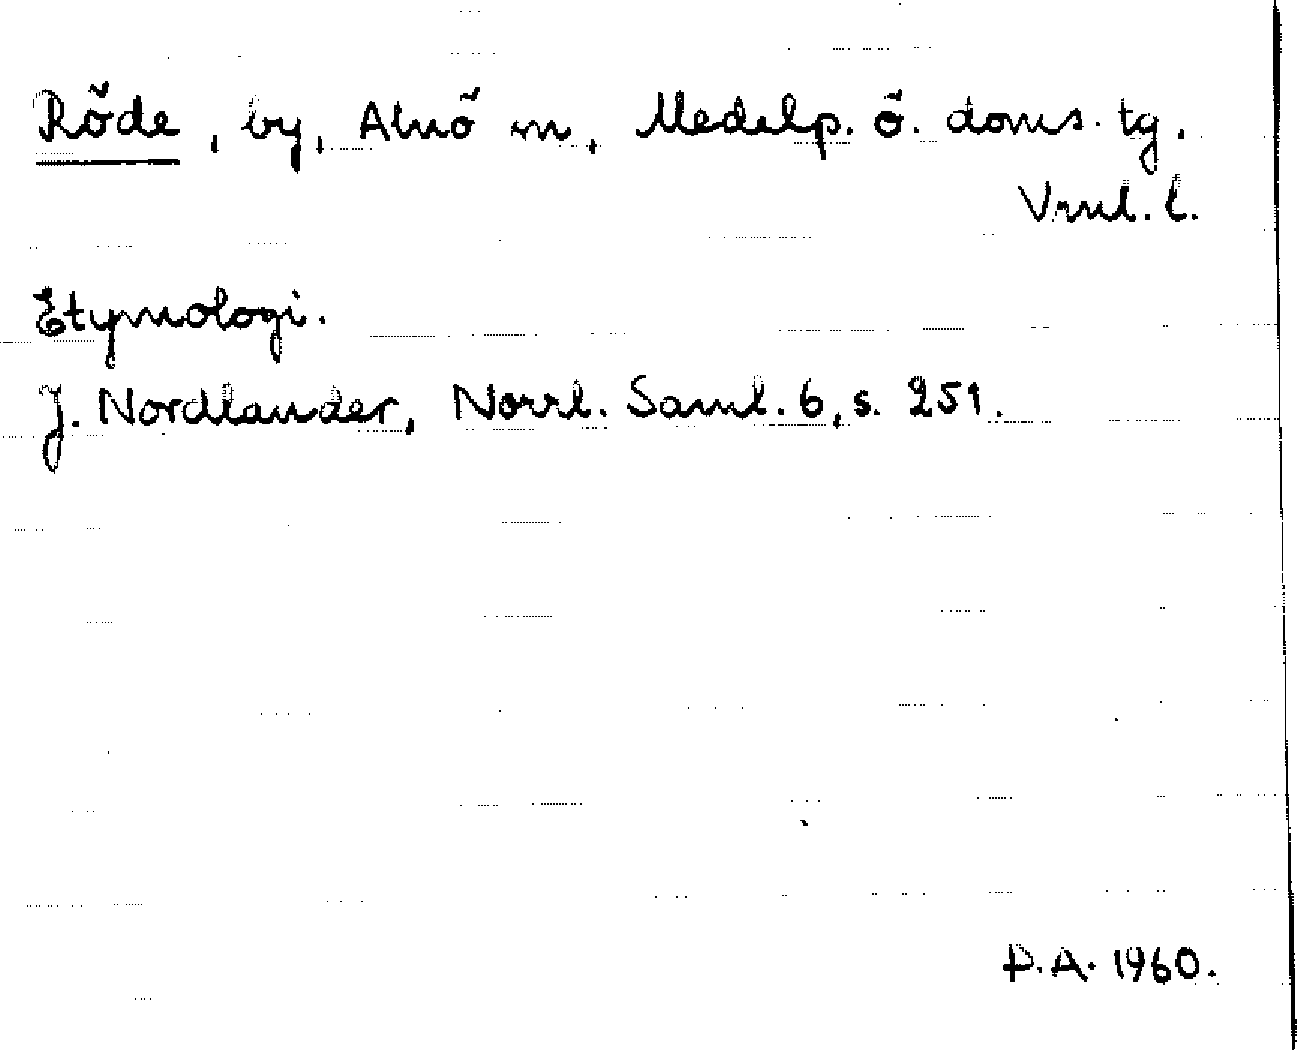 Röde, by, Alnö sn, Medelp. ö. doms. tg.
Vrnl. l.
Etymologi.
J. Nordlander, Norrl. Saml. 6, s. 251.
P.A. 1960.